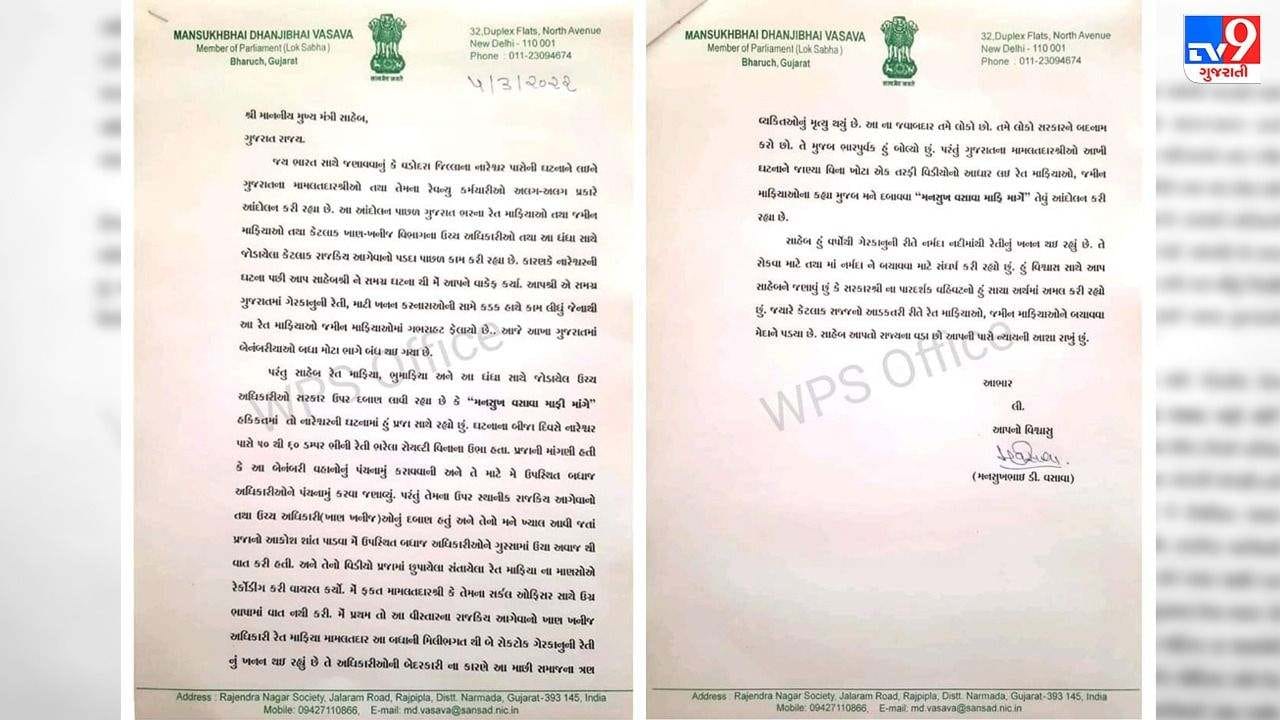 MANSUKHBHAI DHANJIBHAI VASAVA
Member of Parliament (Lok Sabha)
Bharuch, Gujarat
सत्यमेव जयते
32,Duplex Flats, North Avenue
New Delhi - 110 001
Phone : 011-23094674
૫/3/૨૦૨૨
શ્રી માનનીય મુખ્ય મંત્રી સાહેબ,
ગુજરાત રાજ્ય.
જય ભારત સાથે જણાવવાનું કે વડોદરા જિલ્લાના નારેશ્વર પાસેની ઘટનાને લઇને
ગુજરાતના મામલતદારશ્રીઓ તથા તેમના રેવન્યુ કર્મચારીઓ અલગ-અલગ પ્રકારે
આંદોલન કરી રહ્યા છે. આ આંદોલન પાછળ ગુજરાત ભરના રેત માફિયાઓ તથા જમીન
માફિયાઓ તથા કેટલાક ખાણ-ખનીજ વિભાગના ઉચ્ચ અધિકારીઓ તથા આ ધંધા સાથે
જોડાયેલા કેટલાક રાજકિય આગેવાનો પડદા પાછળ કામ કરી રહ્યા છે. કારણકે નારેશ્વરની
ઘટના પછી આપ સાહેબશ્રી ને સમગ્ર ઘટના થી મેં આપને વાકેફ કર્યા. આપશ્રી એ સમગ્ર
ગુજરાતમાં ગેરકાનુની રેતી, માટી ખનન કરનારાઓની સામે કડક હાથે કામ લીધું જેનાથી
આ રેત માફિયાઓ જમીન માફિયાઓમાં ગભરાહટ ફેલાયો છે.. આજે આખા ગુજરાતમાં
બેનંબરીયાઓ બધા મોટા ભાગે બંધ થઇ ગયા છે.
પરંતુ સાહેબ રેત માફિયા, ભુમાફિયા અને આ ધંધા સાથે જોડાયેલ ઉચ્ચ
અધિકારીઓ સરકાર ઉપર દબાણ લાવી રહ્યા છે કે “મનસુખ વસાવા માફી માંગે”
હકિકતમાં તો નારેશ્વરની ઘટનામાં હું પ્રજા સાથે રહ્યો છું. ઘટનાના બીજા દિવસે નારેશ્વર
પાસે ૫૦ થી ૬૦ ડમ્પર ભીની રેતી ભરેલા રોયલ્ટી વિનાના ઉભા હતા. પ્રજાની માંગણી હતી
કે આ બેનંબરી વહાનોનું પંચનામું કરાવવાની અને તે માટે મે ઉપસ્થિત બધાજ
અધિકારીઓને પંચનામું કરવા જણાવ્યું. પરંતું તેમના ઉપર સ્થાનીક રાજકિય આગેવાનો
તથા ઉચ્ચ અધિકારી(ખાણ ખનીજ)ઓનું દબાણ હતું અને તેનો મને ખ્યાલ આવી જતાં
પ્રજાનો આક્રોશ શાંત પાડવા મેં ઉપસ્થિત બધાજ અધિકારીઓને ગુસ્સામાં ઉંચા અવાજ થી
વાત કરી હતી. અને તેનો વિડીયો પ્રજામાં છુપાયેલા સંતાયેલા રેત માફિયા ના માણસોએ
રેર્કોડીંગ કરી વાયરલ કર્યો. મેં ફકત મામલતદારશ્રી કે તેમના સર્કલ ઓફિસર સાથે ઉગ્ર
ભાષામાં વાત નથી કરી. મેં પ્રથમ તો આ વીસ્તારના રાજકિય આગેવાનો ખાણ ખનીજ
અધિકારી રેત માફિયા મામલતદાર આ બધાની મિલીભગત થી બે રોકટોક ગેરકાનુની રેતી
નું ખનન થઇ રહ્યું છે તે અધિકારીઓની બેદરકારી ના કારણે આ માછી સમાજના ત્રણ
WPS Office
Address : Rajendra Nagar Society, Jalaram Road, Rajpipla, Distt. Narmada, Gujarat-393 145, India
Mobile: 09427110866, E-mail: md.vasava@sansad.nic.in
MANSUKHBHAI DHANJIBHAI VASAVA
Member of Parliament (Lok Sabha)
Bharuch, Gujarat
सत्यमेव जयते
32,Duplex Flats, North Avenue
New Delhi - 110 001
Phone : 011-23094674
વ્યકિતઓનું મૃત્યુ થયું છે. આ ના જવાબદાર તમે લોકો છો. તમે લોકો સરકારને બદનામ
કરો છો. તે મુજબ ભારપુર્વક હું બોલ્યો છું. પરંતું ગુજરાતના મામલતદારશ્રીઓ આખી
ઘટનાને જાણ્યા વિના ખોટા એક તરફી વિડીયોનો આધાર લઇ રેત માફિયાઓ, જમીન
માફિયાઓના કહ્યા મુજબ મને દબાવવા “મનસુખ વસાવા માફિ માગેં” તેવું આંદોલન કરી
રહ્યા છે.
સાહેબ હું વર્ષોથી ગેરકાનુની રીતે નર્મદા નદીમાંથી રેતીનું ખનન થઇ રહ્યું છે. તે
રોકવા માટે તથા માં નર્મદા ને બચાવવા માટે સંઘર્ષ કરી રહ્યો છું. હું વિશ્વાસ સાથે આપ
સાહેબને જણાવું છું કે સરકારશ્રી ના પારદર્શક વહિવટનો હું સાચા અર્થમાં અમલ કરી રહ્યો
છું. જ્યારે કેટલાક રાજજનો આડકતરી રીતે રેત માફિયાઓ, જમીન માફિયાઓને બચાવવા
મેદાને પડયા છે. સાહેબ આપતો રાજ્યના વડા છો આપની પાસે ન્યાયની આશા રાખું છું.
આભાર
લી.
આપનો વિશ્વાસુ
(મનસુખભાઇ ડી. વસાવા)
WPS Office
Address : Rajendra Nagar Society, Jalaram Road, Rajpipla, Distt. Narmada, Gujarat-393 145, India
Mobile: 09427110866, E-mail: md.vasava@sansad.nic.in
TV9
ગુજરાતી